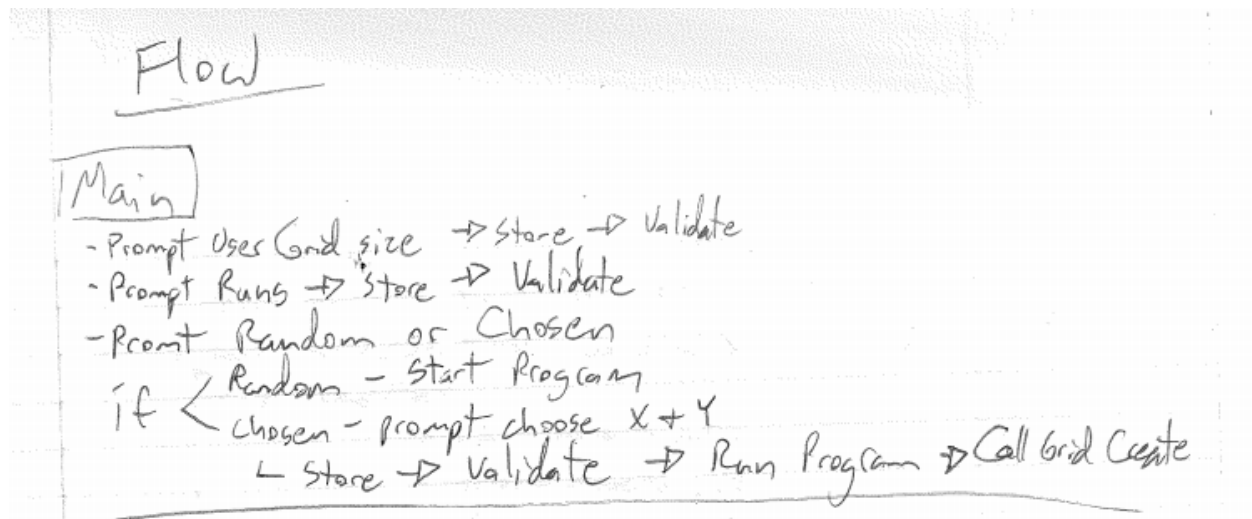 Flow
Main
- Prompt User Grid size → Store → Validate
- Prompt Runs → Store → Validate
- Promt Random or Chosen
if < Random - Start Program
chosen - prompt choose X + Y
∟ Store → Validate → Run Program → Call Grid Create